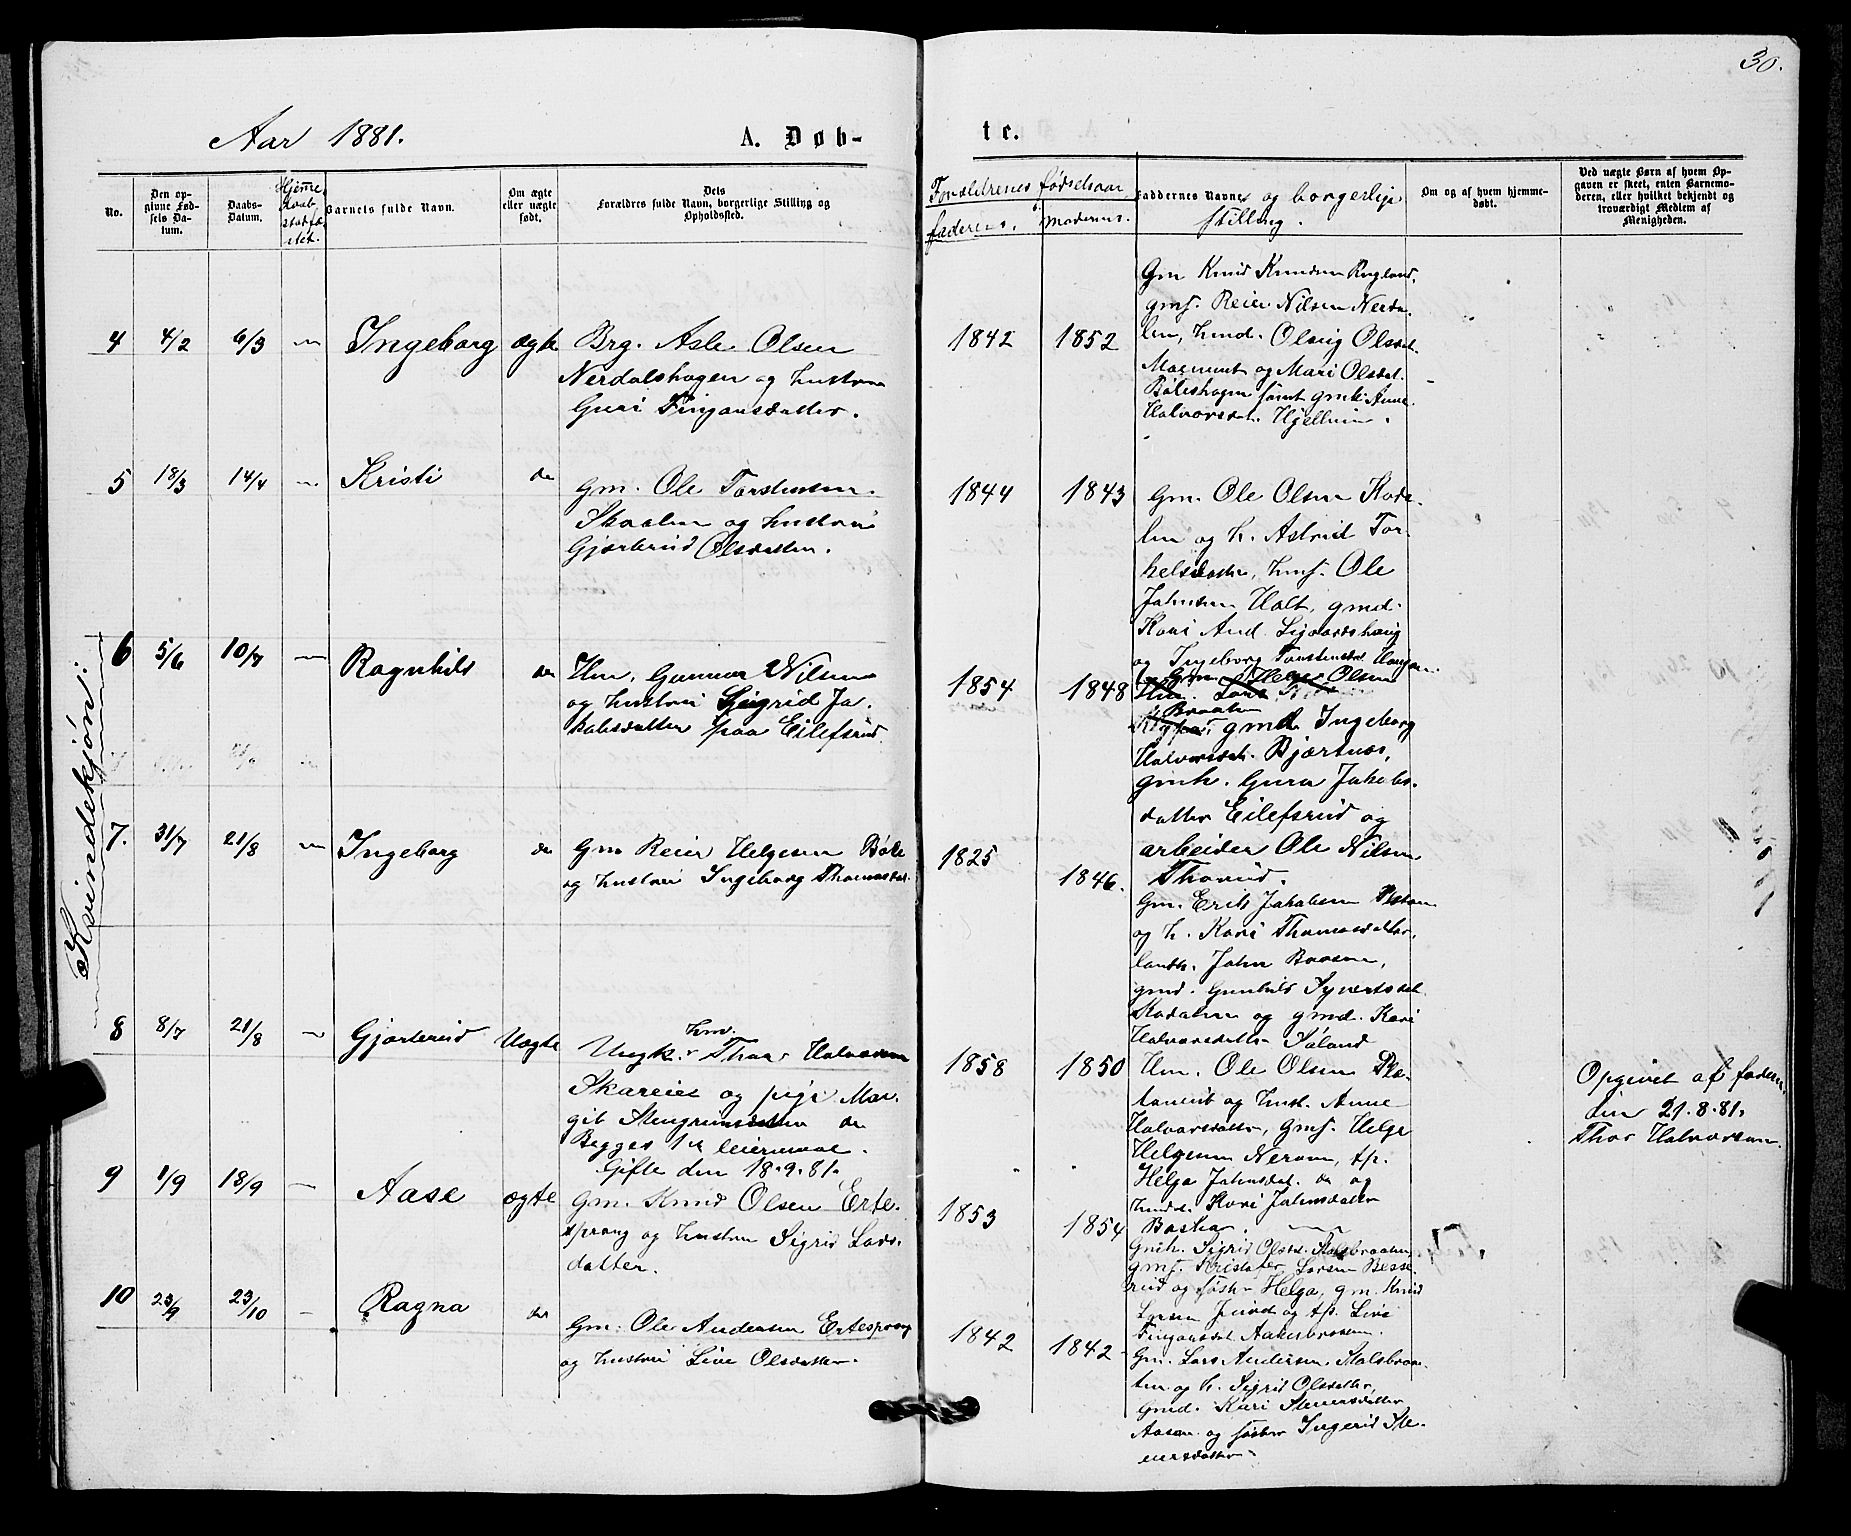 30.
Aar 1881.
A. Døb-
te.
No.
Den op-
givne Fød-
sels Da-
tum.
Daabs-
Datum.
Hjemme
daab
stadfæ-
stet.
Barnets fulde Navn.
Om ægte
eller uægte
født.
Dets
Forældres fulde Navn, borgerlige Stilling og
Opholdssted.
Forældrenes fødselsaar
faderens.
moderens.
Faddernes Navne og borgerlige
stilling.
Om og af hvem hjemme-
døbt.
Ved uægte Børn af hvem Op-
gaven er skeet, enten Barnemo-
deren, eller hvilket bekjendt og
troværdigt Medlem af
Menigheden.
Kvindekjøn:
4 4/2 6/3 Ingeborg ægte
Brg. Asle Olsen
Nerdalshagen og hustru
Guri Fingarsdatter.
1842 1852
Gm Knud Knudsen Rugland
gms. Reier Nilsen Nerda-
len, hmd. Olaug Olsdat.
og Mari Olsdat.
Bøleshagen samt gmk. Anne
Halvorsdat. Hjellum.
5 18/3 14/4 Kristi do
Gm. Ole Torstensen
Skaalen og hustru
Gjertrud Olsdatter.
1844 1843
Gm. Ole Olsen Roda-
len og h. Astrid Tor-
kelsdatter, hms. Ole
Johnsen Holt, gmd.
Kari And. Sigvardshaug
og Ingeborg Torstensdat. Haugen
6 5/6 10/7 Ragnhild do
Hm. Gunnar Nilsen
og hustru Sigrid Ja-
kobsdatter paa Eilefsrud
1854 1848
Gm. Helge Olsen
Braaten
gmd. Ingeborg
Halvorsdat. Bjørtnes,
gmk. Guro Jakobs-
datter Eilefsrud og
arbeider Ole Nilsen
Thorud.
7. 31/7 21/8 Ingeborg do
Gm Reier Helgesen Bøle
og hustru Ingeborg Thomasdat.
1825 1846.
Gm. Erik Jakobsen
og h. Kari Thomasdatter,
landh. John Baasen,
gmd. Gunhild Syvertsdat.
Rodalen og gmd. Kari
Halvorsdatter Søland
8 8/7 21/8 Gjertrud Uægte
hm.
Ungk. Thor Halvorsen
Skareiet og pige Mar-
git Stengrimsdatter do
Begges 1ste leiermaal.
Gifte den 18.9.81.
1858 1850
Hm. Ole Olsen Pla-
og hust. Anne
Halvorsdatter, gms. Helge
Helgesen Nerom, tp.
Helga Johnsdat. do og
hmd. Kari Johnsdatter
Opgivet af faderen
den 21.8.81.
Thor Halvorsen.
9 1/9 18/9 Aase ægte
Gm. Knud Olsen Erte-
sprang og hustru Sigrid Lars-
datter.
1853 1854
Gmk. Sigrid Olsd. Stolsbraaten,
gms. Kristofer Larsen Besse-
rud og søster Helga, gm. Knud
Larsen Juvet og tp. Live
Fingarsdat. Aakesbraaten.
10 23/9 23/10 Ragna do
Gm. Ole Andersen Ertesprang
og hustru Live Olsdatter.
1842 1842
Gm. Lars Andersen Stolsbraa-
ten og h. Sigrid Olsdatter,
Gmd. Kari Steinersdatter
Aasen og søster Ingerid Ste-
nersdatter